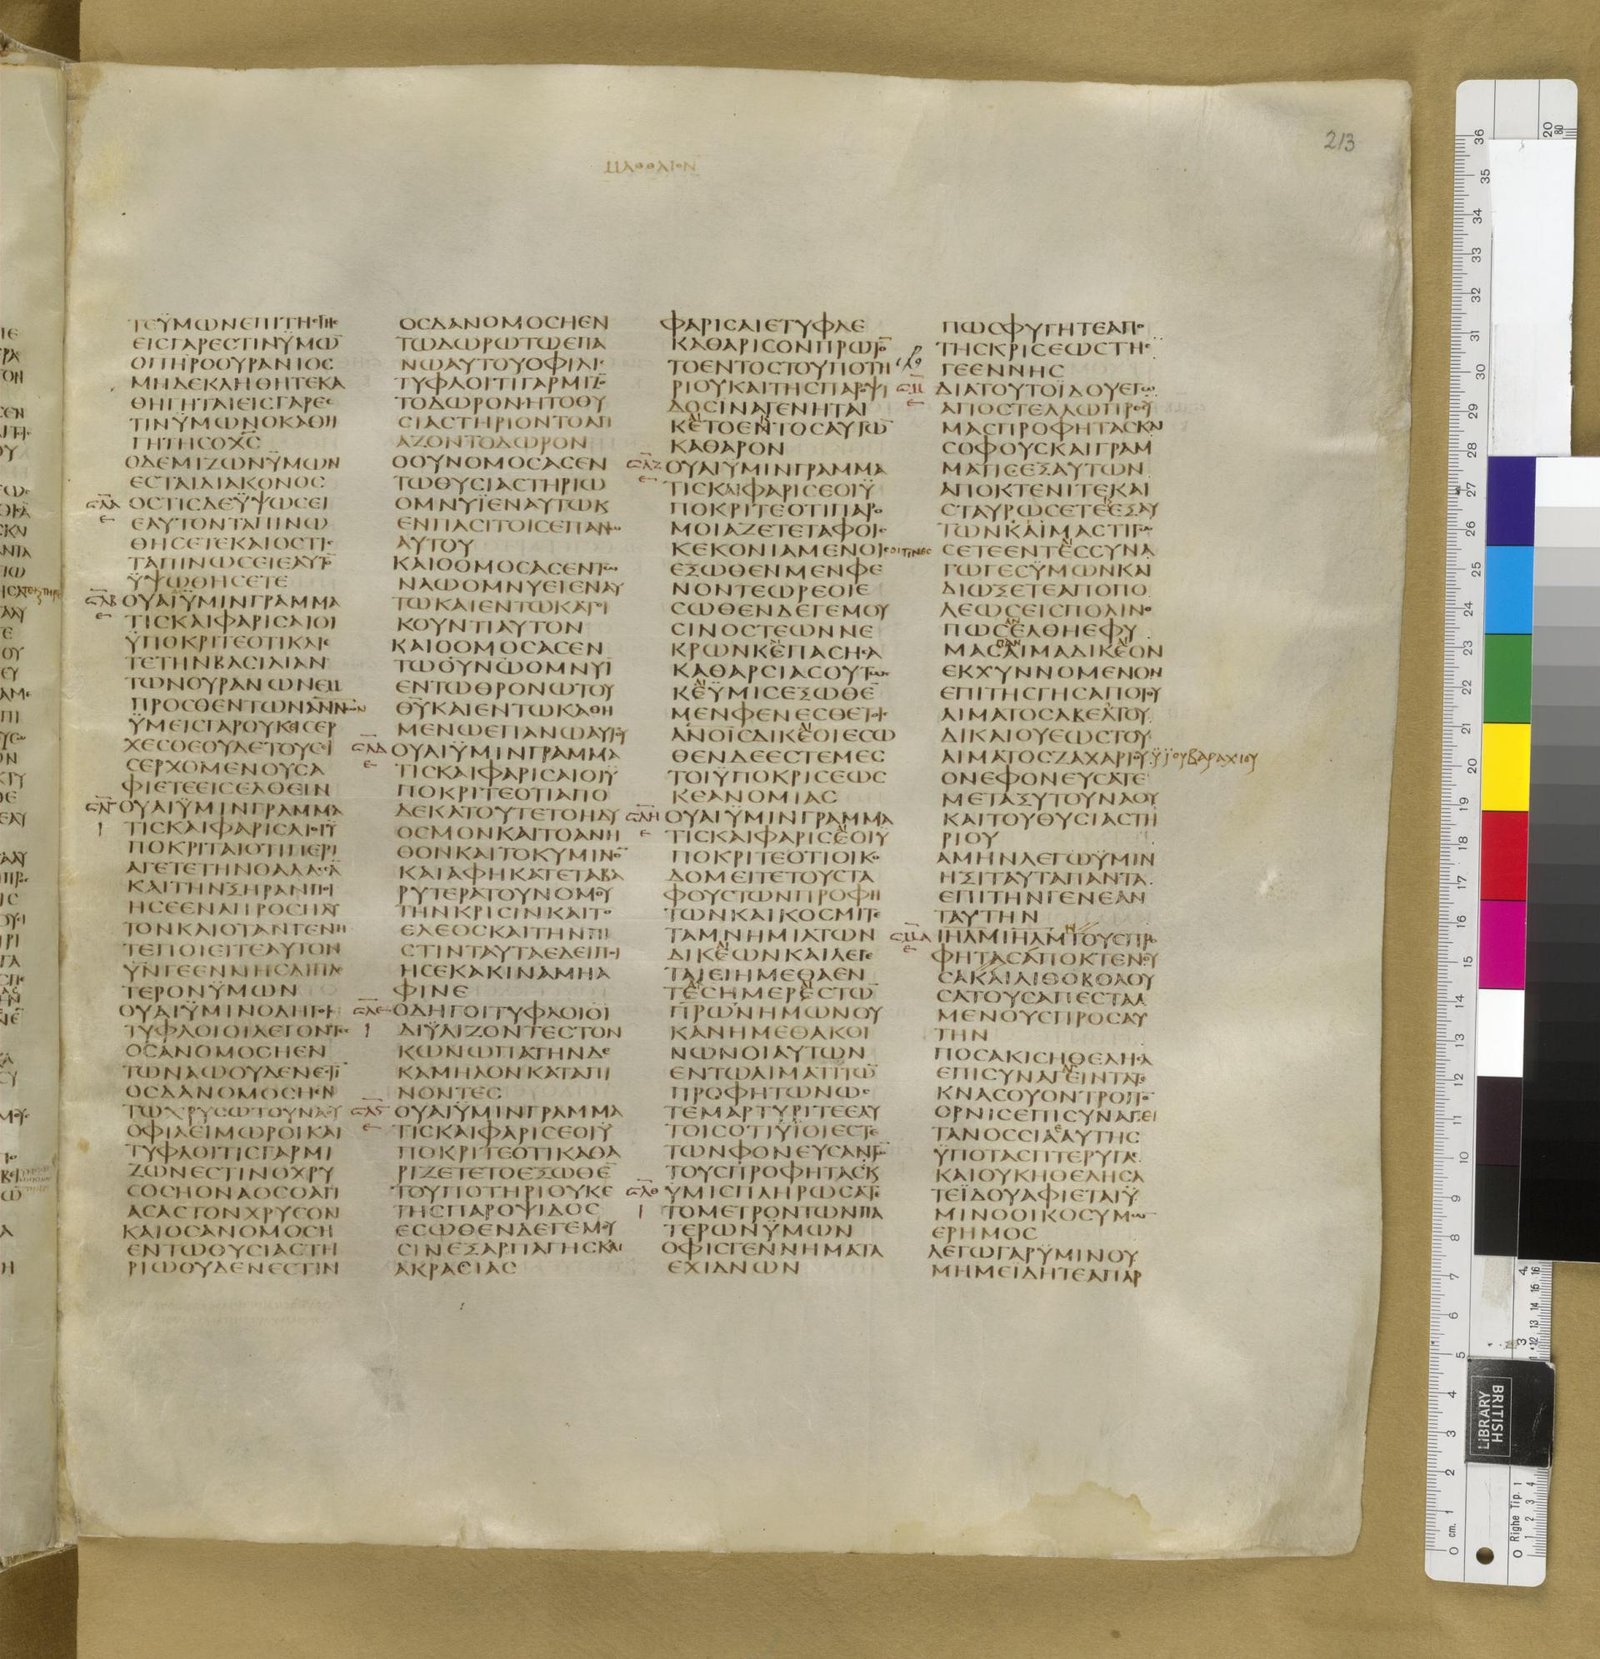 213
ΜΑΘΘΑΙΟΝ
ΤΕΫΜΩΝΕΠΙΤΗϹΓΗϹ
ΕΙϹΓΑΡΕϹΤΙΝΫΜΩ̅
ΟΠΗΡΟΟΥΡΑΝΙΟϹ
ΜΗΔΕΚΛΗΘΗΤΕΚΑ
ΘΗΓΗΤΑΙΕΙϹΓΑΡΕϹ
ΤΙΝΫΜΩΝΟΚΑΘΗ
ΓΗΤΗϹΟΧϹ
ΟΔΕΜΙΖΩΝΫΜΩΝ
ΕϹΤΑΙΔΙΑΚΟΝΟϹ
ϹΛΑ ΟϹΤΙϹΔΕΫΨΩϹΕΙ
Ε ΕΑΥΤΟΝΤΑΠΙΝΩ
ΘΗϹΕΤΕΚΑΙΟϹΤΙϹ
ΤΑΠΙΝΩϹΕΙΕΑΥΤΟ̅
ΫΨΩΘΗϹΕΤΕ
ϹΛΒ ΟΥΑΙΫΜΙΝΓΡΑΜΜΑ
Ε ΤΙϹΚΑΙΦΑΡΙϹΑΙΟΙ
ΫΠΟΚΡΙΤΕΟΤΙΚΛΙΕ
ΤΕΤΗΝΒΑϹΙΛΙΑΝ
ΤΩΝΟΥΡΑΝΩΝΕΜ
ΠΡΟϹΘΕΝΤΩΝΑΝΝΩ̅Ν
ΫΜΕΙϹΓΑΡΟΥΚΕΙϹΕΡ
ΧΕϹΘΕΟΥΔΕΤΟΥϹΕΙ
ϹΕΡΧΟΜΕΝΟΥϹΑ
ΦΙΕΤΕΕΙϹΕΛΘΕΙΝ
ϹΛΓ ΟΥΑΙΫΜΙΝΓΡΑΜΜΑ
Ι ΤΙϹΚΑΙΦΑΡΙϹΑΙΟΙΫ
ΠΟΚΡΙΤΑΙΟΤΙΠΕΡΙ
ΑΓΕΤΕΤΗΝΘΑΛΑϹϹΑ̅
ΚΑΙΤΗΝΞΗΡΑΝΠΟΙ
ΗϹΕΕΝΑΠΡΟϹΗΛΥ
ΤΟΝΚΑΙΟΤΑΝΓΕΝΗ
ΤΕΠΟΙΕΙΤΕΑΥΤΟΝ
ΫΝΓΕΕΝΝΗϹΔΙΠΛΟ
ΤΕΡΟΝΫΜΩΝ
ΟΥΑΙΫΜΙΝΟΔΗΓΟΙ
ΤΥΦΛΟΙΟΙΛΕΓΟΝΤΕϹ
ΟϹΑΝΟΜΟϹΗΕΝ
ΤΩΝΑΩΟΥΔΕΝΕϹΤΙ̅
ΟϹΔΑΝΟΜΟϹΗΕΝ
ΤΩΧΡΥϹΩΤΟΥΝΑΟΥ
ΟΦΙΛΕΙΜΩΡΟΙΚΑΙ
ΤΥΦΛΟΙΤΙϹΓΑΡΜΙ
ΖΩΝΕϹΤΙΝΟΧΡΥ
ϹΟϹΗΟΝΑΟϹΟΑΓΙ
ΑϹΑϹΤΟΝΧΡΥϹΟΝ
ΚΑΙΟϹΑΝΟΜΟϹΗ
ΕΝΤΩΘΥϹΙΑϹΤΗ
ΡΙΩΟΥΔΕΝΕϹΤΙΝ
ΟϹΔΑΝΟΜΟϹΗΕΝ
ΤΩΔΩΡΩΤΩΕΠΑ
ΝΩΑΥΤΟΥΟΦΙΛΙ
ΤΥΦΛΟΙΤΙΓΑΡΜΙΖΟ̅
ΤΟΔΩΡΟΝΗΤΟΘΥ
ϹΙΑϹΤΗΡΙΟΝΤΟΑΓΙ
ΑΖΟΝΤΟΔΩΡΟΝ
ΟΟΥΝΟΜΟϹΑϹΕΝ
ΤΩΘΥϹΙΑϹΤΗΡΙΩ
ΟΜΝΥΪΕΝΑΥΤΩΚ
ΕΝΠΑϹΙΤΟΙϹΕΠΑΝΩ
ΑΥΤΟΥ
ΚΑΙΟΟΜΟϹΑϹΕΝΤΩ
ΝΑΩΟΜΝΥΕΙΕΝΑΥ
ΤΩΚΑΙΕΝΤΩΚΑΤΟΙ
ΚΟΥΝΤΙΑΥΤΟΝ
ΚΑΙΟΟΜΟϹΑϹΕΝ
ΤΩΟΥΝΩΟΜΝΥΪ
ΕΝΤΩΘΡΟΝΩΤΟΥ
ΘΥΚΑΙΕΝΤΩΚΑΘΗ
ΜΕΝΩΕΠΑΝΩΑΥΤΟΥ
ϹΛΔ ΟΥΑΙΫΜΙΝΓΡΑΜΜΑ
Ε ΤΙϹΚΑΙΦΑΡΙϹΑΙΟΙΫ
ΠΟΚΡΙΤΕΟΤΙΑΠΟ
ΔΕΚΑΤΟΥΤΕΤΟΗΔΥ
ΟϹΜΟΝΚΑΙΤΟΑΝΗ
ΘΟΝΚΑΙΤΟΚΥΜΙΝΟ̅
ΚΑΙΑΦΗΚΑΤΕΤΑΒΑ
ΡΥΤΕΡΑΤΟΥΝΟΜΟΥ
ΤΗΝΚΡΙϹΙΝΚΑΙΤΟ
ΕΛΕΟϹΚΑΙΤΗΝΠΙ
ϹΤΙΝΤΑΥΤΑΕΔΕΙΠΟΙ
ΗϹΕΚΑΚΙΝΑΜΗΑ
ΦΙΝΕ
ϹΛΕ ΟΔΗΓΟΙΤΥΦΛΟΙΟΪ
Ι ΔΙΫΛΙΖΟΝΤΕϹΤΟΝ
ΚΩΝΩΠΑΤΗΝΔΕ
ΚΑΜΗΛΟΝΚΑΤΑΠΙ
ΝΟΝΤΕϹ
ϹΛϚ ΟΥΑΙΫΜΙΝΓΡΑΜΜΑ
Ε ΤΙϹΚΑΙΦΑΡΙϹΕΟΙΫ
ΠΟΚΡΙΤΕΟΤΙΚΑΘΑ
ΡΙΖΕΤΕΤΟΕΞΩΘΕ̅
ΤΟΥΠΟΤΗΡΙΟΥΚΕ
ΤΗϹΠΑΡΟΨΙΔΟϹ
ΕϹΩΘΕΝΔΕΓΕΜΟΥ
ϹΙΝΕΞΑΡΠΑΓΗϹΚΑΙ
ΑΚΡΑϹΙΑϹ
ΦΑΡΙϹΑΙΕΤΥΦΛΕ
ΚΑΘΑΡΙϹΟΝΠΡΩΤΟ̅
ΤΟΕΝΤΟϹΤΟΥΠΟΤΗ
ΡΙΟΥΚΑΙΤΗϹΠΑΡΟΨΙ
ΔΟϹΙΝΑΓΕΝΗΤΑΙ
ΚΕΤΟΕΝΤΟϹΑΥΤΟΥ
ΚΑΘΑΡΟΝ
ϹΛΖ ΟΥΑΙΫΜΙΝΓΡΑΜΜΑ
Ε ΤΙϹΚΑΙΦΑΡΙϹΕΟΙΫ
ΠΟΚΡΙΤΕΟΤΙΠΑΡΟ
ΜΟΙΑΖΕΤΕΤΑΦΟΙϹ
ΚΕΚΟΝΙΑΜΕΝΟΙϹΟΙΤΙΝΕϹ
ΕΞΩΘΕΝΜΕΝΦΕ
ΝΟΝΤΕΩΡΕΟΙΕ
ϹΩΘΕΝΔΕΓΕΜΟΥ
ϹΙΝΟϹΤΕΩΝΝΕ
ΚΡΩΝΚΕΠΑϹΗϹΑ
ΚΑΘΑΡϹΙΑϹΟΥΤΩϹ
ΚΕΫΜΙϹΕΞΩΘΕ̅
ΜΕΝΦΕΝΕϹΘΕΤΟΙϹ
ΑΝΟΙϹΔΙΚΕΟΙΕϹΩ
ΘΕΝΔΕΕϹΤΕΜΕϹ
ΤΟΙΫΠΟΚΡΙϹΕΩϹ
ΚΕΑΝΟΜΙΑϹ
ϹΛΗ ΟΥΑΙΫΜΙΝΓΡΑΜΜΑ
Ε ΤΙϹΚΑΙΦΑΡΙϹΕΟΙΫ
ΠΟΚΡΙΤΕΟΤΙΟΙΚΟ
ΔΟΜΕΙΤΕΤΟΥϹΤΑ
ΦΟΥϹΤΩΝΠΡΟΦΗ
ΤΩΝΚΑΙΚΟϹΜΙΤΕ
ΤΑΜΝΗΜΙΑΤΩΝ
ΔΙΚΕΩΝΚΑΙΛΕΓΕ
ΤΑΙΕΙΗΜΕΘΑΕΝ
ΤΕϹΗΜΕΡΕϹΤΩ̅
ΠΡΩΝΗΜΩΝΟΥ
ΚΑΝΗΜΕΘΑΚΟΙ
ΝΩΝΟΙΑΥΤΩΝ
ΕΝΤΩΑΙΜΑΤΙΤΩ̅
ΠΡΟΦΗΤΩΝΩϹ
ΤΕΜΑΡΤΥΡΙΤΕΕΑΥ
ΤΟΙϹΟΤΙΫΪΟΙΕϹΤΕ
ΤΩΝΦΟΝΕΥϹΑΝΤΩ̅
ΤΟΥϹΠΡΟΦΗΤΑϹΚ
ϹΛΘ ΥΜΙϹΠΛΗΡΩϹΑΤΕ
Ι ΤΟΜΕΤΡΟΝΤΩΝΠΑ
ΤΕΡΩΝΫΜΩΝ
ΟΦΙϹΓΕΝΝΗΜΑΤΑ
ΕΧΙΔΝΩΝ
ΠΩϹΦΥΓΗΤΕΑΠΟ
ΤΗϹΚΡΙϹΕΩϹΤΗϹ
ΓΕΕΝΝΗϹ
ϹΜ ΔΙΑΤΟΥΤΟΪΔΟΥΕΓΩ
Ε ΑΠΟϹΤΕΛΛΩΠΡΟΥ
ΜΑϹΠΡΟΦΗΤΑϹΚΑΙ
ϹΟΦΟΥϹΚΑΙΓΡΑΜ
ΜΑΤΙϹΕΞΑΥΤΩΝ
ΑΠΟΚΤΕΝΙΤΕΚΑΙ
ϹΤΑΥΡΩϹΕΤΕΕΞΑΥ
ΤΩΝΚΑΙΜΑϹΤΙΓΩ
ϹΕΤΕΕΝΤΕϹϹΥΝΑ
ΓΩΓΕϹΫΜΩΝΚΑΙ
ΔΙΩΞΕΤΕΑΠΟΠΟ
ΛΕΩϹΕΙϹΠΟΛΙΝΟ
ΠΩϹΕΛΘΗΕΦΥ
ΜΑϹΑΙΜΑΔΙΚΕΟΝ
ΕΚΧΥΝΝΟΜΕΝΟΝ
ΕΠΙΤΗϹΓΗϹΑΠΟΤΟΥ
ΑΙΜΑΤΟϹΑΒΕΛΤΟΥ
ΔΙΚΑΙΟΥΕΩϹΤΟΥ
ΑΙΜΑΤΟϹΖΑΧΑΡΙΟΥ ΫΪΟΥΒΑΡΑΧΙΟΥ
ΟΝΕΦΟΝΕΥϹΑΤΕ
ΜΕΤΑΞΥΤΟΥΝΑΟΥ
ΚΑΙΤΟΥΘΥϹΙΑϹΤΗ
ΡΙΟΥ
ΑΜΗΝΛΕΓΩΫΜΙΝ
ΗΞΙΤΑΥΤΑΠΑΝΤΑ
ΕΠΙΤΗΝΓΕΝΕΑΝ
ΤΑΥΤΗΝ
ϹΜΑ ΙΗΛΜΙΗΛΜΤΟΥϹΠΡΟ
Ε ΦΗΤΑϹΑΠΟΚΤΕΝΟΥ
ϹΑΚΑΙΛΙΘΟΒΟΛΟΥ
ϹΑΤΟΥϹΑΠΕϹΤΑΛ
ΜΕΝΟΥϹΠΡΟϹΑΥ
ΤΗΝ
ΠΟϹΑΚΙϹΗΘΕΛΗϹΑ
ΕΠΙϹΥΝΑΓΕΙΝΤΑΤΕ
ΚΝΑϹΟΥΟΝΤΡΟΠΟ̅
ΟΡΝΙϹΕΠΙϹΥΝΑΓΕΙ
ΤΑΝΟϹϹΙΑΑΥΤΗϹ
ΫΠΟΤΑϹΠΤΕΡΥΓΑϹ
ΚΑΙΟΥΚΗΘΕΛΗϹΑ
ΤΕΪΔΟΥΑΦΙΕΤΑΙΫ
ΜΙΝΟΟΙΚΟϹΥΜΩ
ΕΡΗΜΟϹ
ΛΕΓΩΓΑΡΫΜΙΝΟΥ
ΜΗΜΕΙΔΗΤΕΑΠΑΡ
BRITISH
LIBRARY
Righe Tip.
cm.